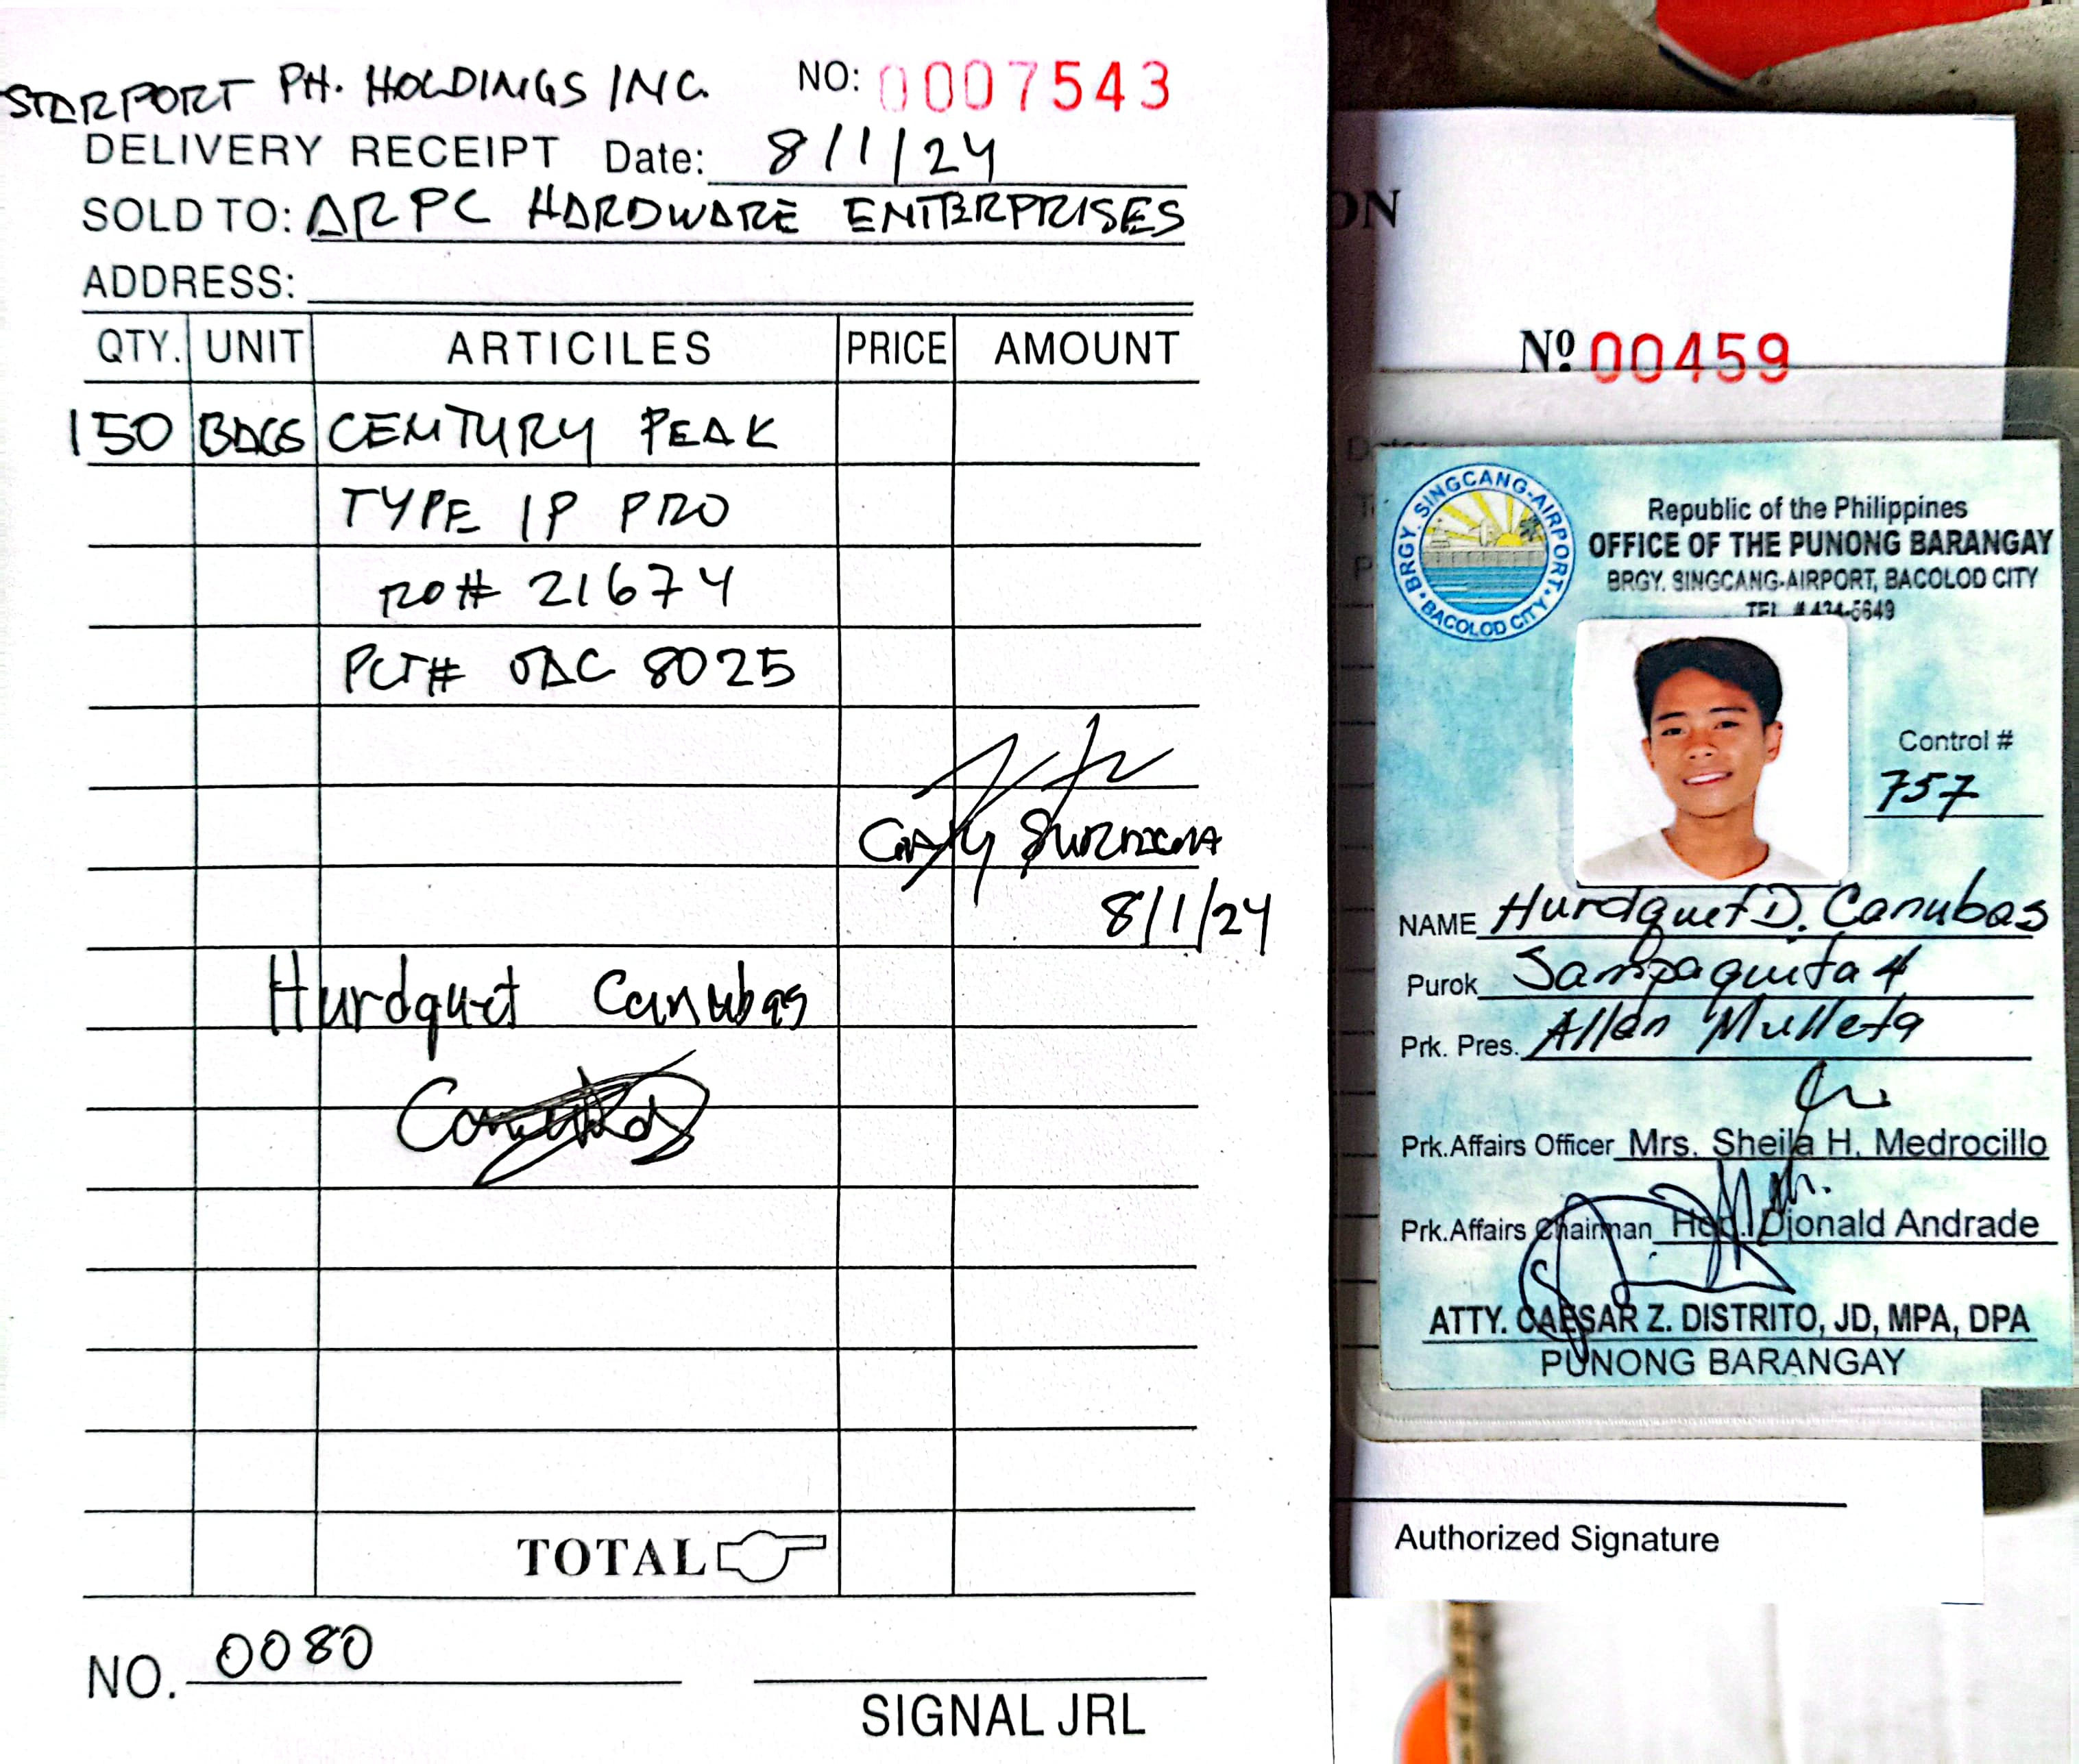 STARPORT PH. HOLDINGS INC. NO: 0007543
DELIVERY RECEIPT Date: 8/1/24
SOLD TO: ARPC HARDWARE ENTERPRISES
ADDRESS:
QTY. UNIT ARTICILES PRICE AMOUNT
150 BAGS CENTURY PEAK
TYPE 1P PRO
RO# 21674
PLT# JAC 8025
8/1/24
Hurdquet Canubas
TOTAL
NO. 0080
SIGNAL JRL
ON
Nº 00459
BRGY. SINGCANG-AIRPORT
BACOLOD CITY
Republic of the Philippines
OFFICE OF THE PUNONG BARANGAY
BRGY. SINGCANG-AIRPORT, BACOLOD CITY
TEL # 434-5649
Control #
757
NAME Hurdquet D. Canubas
Purok Sampaguita 4
Prk. Pres. Allan Mulleta
Prk.Affairs Officer Mrs. Sheila H. Medrocillo
Prk.Affairs Chairman Hon. Dionald Andrade
ATTY. CAESAR Z. DISTRITO, JD, MPA, DPA
PUNONG BARANGAY
Authorized Signature